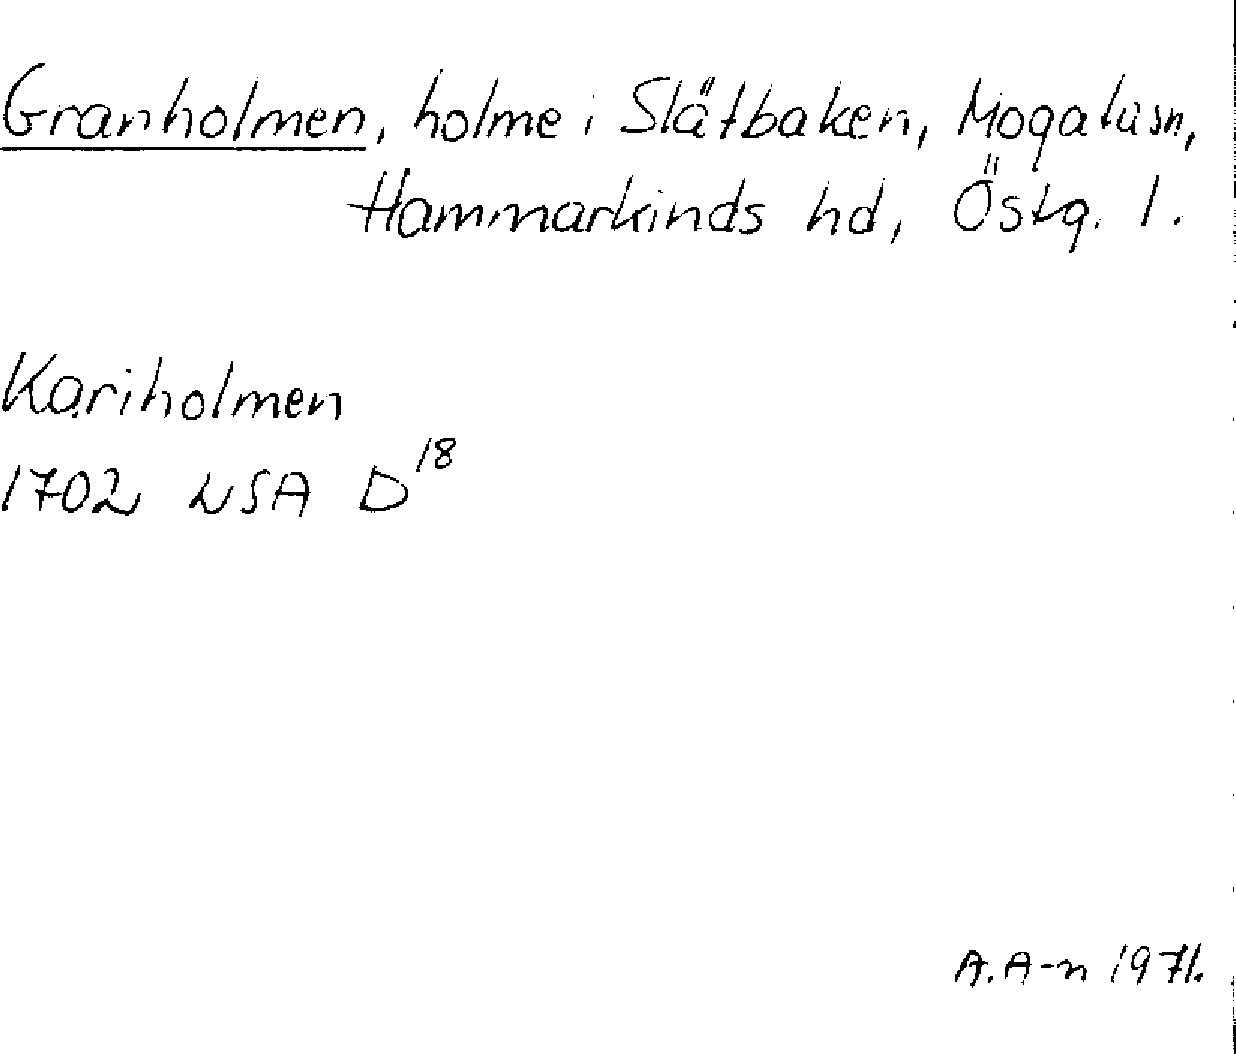 Granholmen, holme i Slätbaken, Mogata sn,
Hammarkinds hd, Östg. l.
Kariholmen
1702 LSA D18
A. A-n 1971.